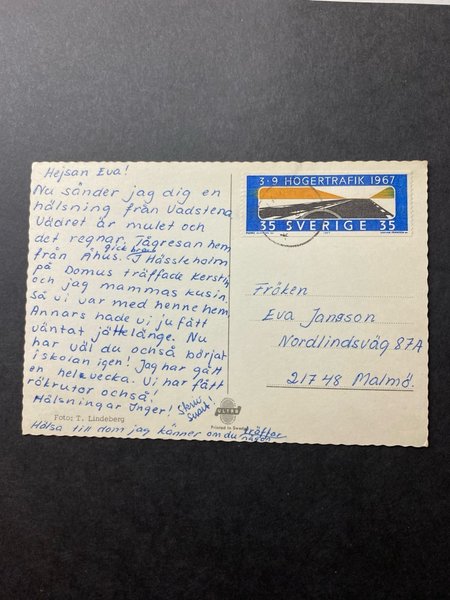 Hejsan Eva!
Nu sänder jag dig en
hälsning från Vadstena
Vädret är mulet och
det regnar. Tågresan hem
från Åhus. gick bra. I Hässleholm
på Domus träffade Kerstin
och jag mammas kusin
så vi var med henne hem
Annars hade vi ju fått
väntat jättelänge. Nu
har väl du ochså börjat
iskolan igen! Jag har gått
en hel vecka. Vi har fått
räkrutor ochså!
Hälsningar Inger! Skriv
Snart!
Foto: T. Lindeberg
Hälsa till dom jag känner om du träffar
någon
ULTRA
Printed in Sweden
3·9 HÖGERTRAFIK 1967
35 SVERIGE 35
Fröken
Eva Jansson
Nordlindsväg 87A
217 48 Malmö.